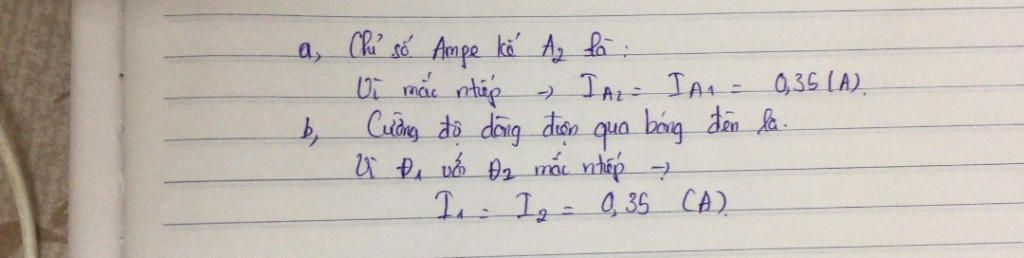 a, Chỉ số Ampe kế A2 là :
Vì mắc ntiếp → IA2 = IA1 = 0,35 (A).
b, Cường độ dòng điện qua bóng đèn là.
Vì Đ1 với Đ2 mắc ntiếp →
I1 = I2 = 0,35 (A).